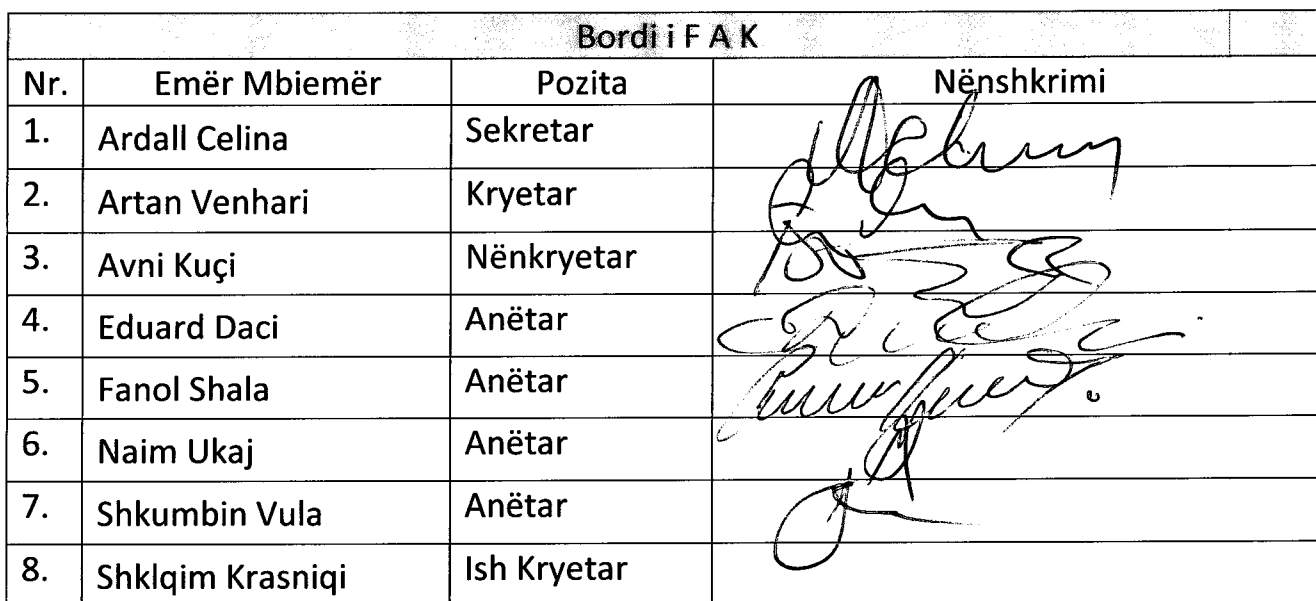 Bordi i F A K
Nr. Emër Mbiemër Pozita Nënshkrimi
1. Ardall Celina Sekretar
2. Artan Venhari Kryetar
3. Avni Kuçi Nënkryetar
4. Eduard Daci Anëtar
5. Fanol Shala Anëtar
6. Naim Ukaj Anëtar
7. Shkumbin Vula Anëtar
8. Shklqim Krasniqi Ish Kryetar